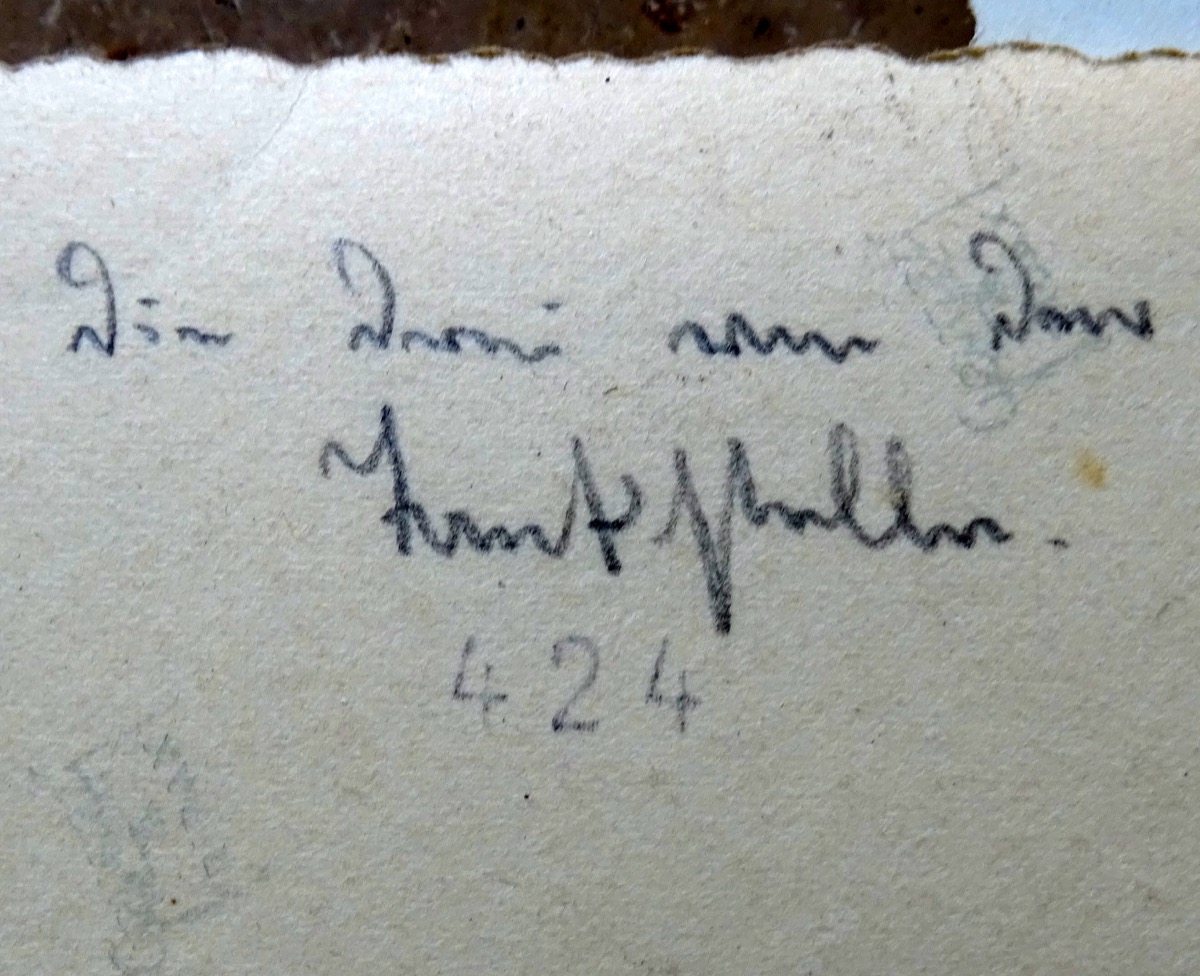 Die Drei von Der
Tankstelle.
424